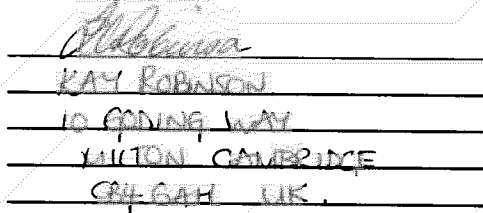 KAY ROBINSON
10 GODING WAY
MILTON CAMBRIDGE
CB4 6AH UK.